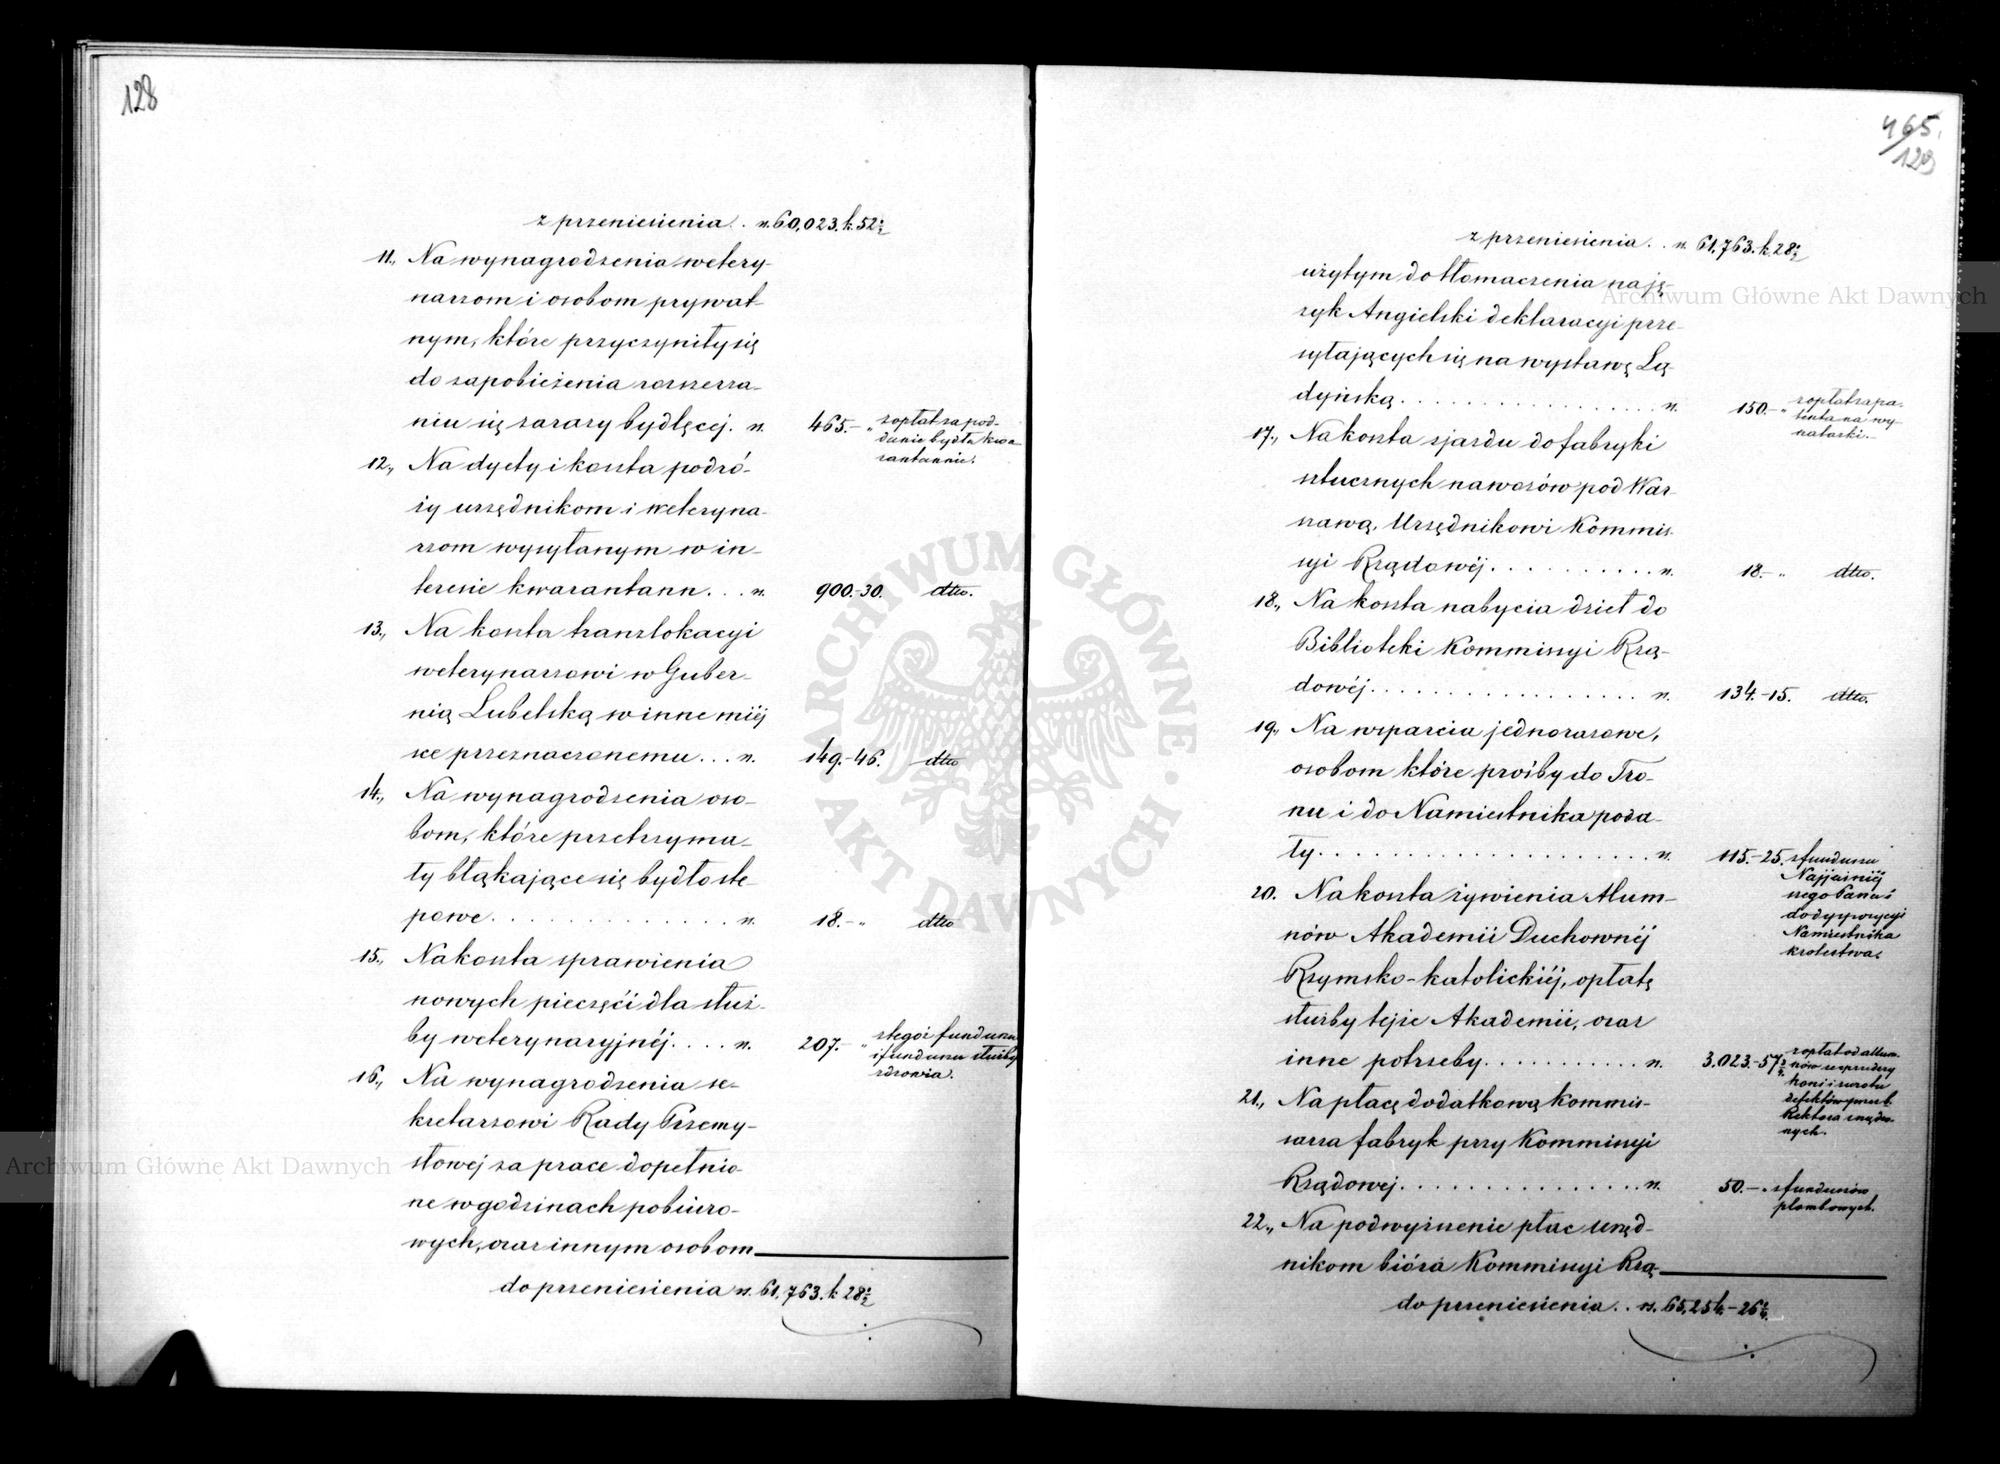 128
z przeniesienia . rs. 60,023. k. 52½
11., Na wynagrodzenia wetery-
narzom i osobom prywat-
nym, które przyczyniły się
do zapobieżenia rozszerza-
niu się zarazy bydlęcej. rs. 465.- „ z opłat za pod-
danie bydła kwa-
rantannie.
12., Na dyety i koszta podró-
ży urzędnikom i weteryna-
rzom wysyłanym w in-
teresie kwarantann. . . rs. 900.-30. dtto.
13., Na koszta translokacyi
weterynarzowi w Guber-
nią Lubelską w inne miéj
sce przeznaczonemu. . . rs. 149.-46. dtto
14., Na wynagrodzenia oso-
bom, które przetrzyma-
ły błąkające się bydło ste-
powe. . . . . . . . . . . . . rs. 18.- „ dtto
15., Na koszta sprawienia
nowych pieczęći dla służ-
by weterynaryjnéj. . . . rs. 207.- „ z tegoż funduszu
i funduszu służby
zdrowia.
16., Na wynagrodzenia se-
kretarzowi Rady Przemy-
słowej za prace dopełnio-
ne w godzinach pobiuro-
wych, oraz innym osobom
do przeniesienia rs. 61,763. k. 28½
465.
129
z przeniesienia . . rs. 61,763. k. 28½
użytym do tłomaczenia na ję-
zyk Angielski deklaracyi prze-
syłających się na wystawę Lą-
dyńską. . . . . . . . . . . . . . . rs. 150.- „ z opłat za pa-
tenta na wy-
nalazki.-
17., Na koszta zjazdu do fabryki
sztucznych nawozów pod War-
szawą, Urzędnikowi Kommis-
syi Rządowéj. . . . . . . . . . rs. 18.- „ dtto.
18., Na koszta nabycia dzieł do
Biblioteki Kommissyi Rzą-
dowéj. . . . . . . . . . . . . . . . rs. 134.-15. dtto.
19., Na wsparcia jednorazowe,
osobom które prośby do Tro-
nu i do Namiestnika poda-
ły. . . . . . . . . . . . . . . . . . . rs. 115.-25. z funduszu
Najjaśniéj
szego Pana i
do dyspozycyi
Namiestnika
Królestwa.
20. Na koszta żywienia Alum-
nów Akademii Duchownéj
Rzymsko-katolickiéj, opłatę
służby tejże Akademii, oraz
inne potrzeby. . . . . . . . . . rs. 3,023.-57½ z opłat od alum-
nów ze sprzedaży
koni i zwrotu
defektów przez b.
Rektora zrządzo-
nych.
21., Na płacę dodatkową Kommis-
sarza fabryk przy Kommissyi
Rządowej. . . . . . . . . . . . . . rs. 50.- „ z funduszów
plombowych.
22., Na podwyższenie płac urzęd-
nikom bióra Kommissyi Rzą-
do przeniesienia . . rs. 65,254.-26
Archiwum Główne Akt Dawnych
Archiwum Główne Akt Dawnych
ARCHIWUM GŁÓWNE AKT DAWNYCH